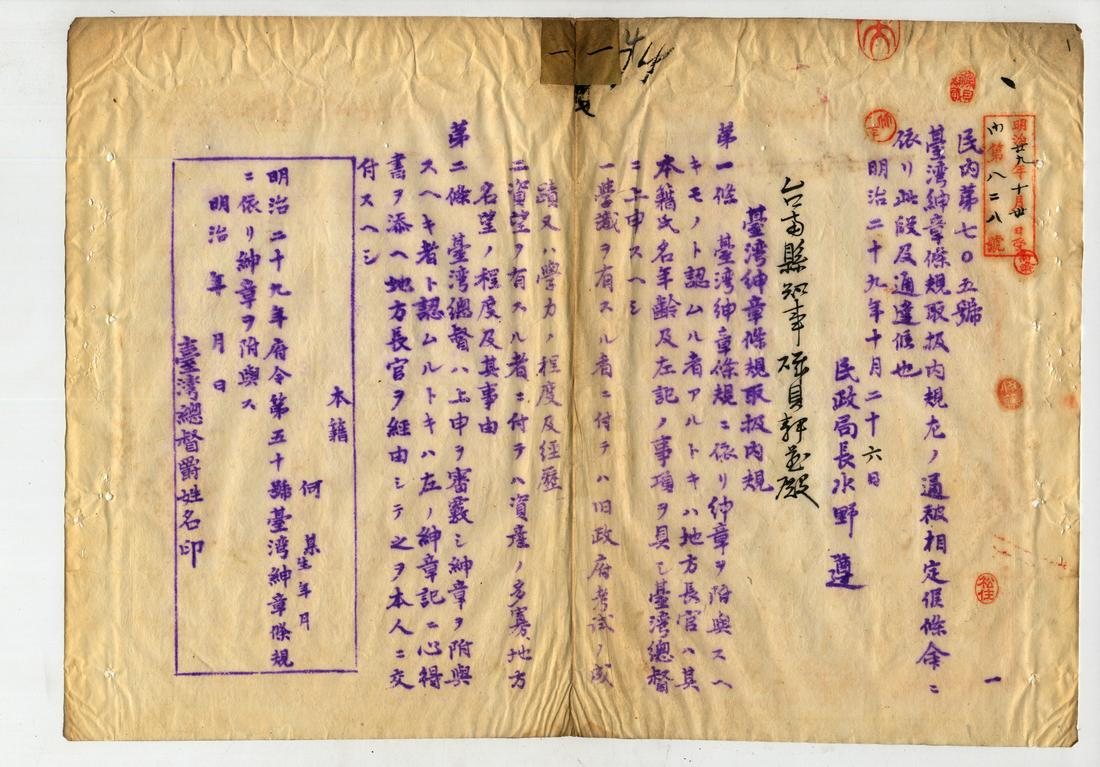 明治廿九年十月廿日
内第八二八號
民内第七〇五號
臺湾紳章條規取扱内規左ノ通被相定候條命ニ
依リ此段及通達候也
明治二十九年十月二十六日
民政局長水野 遵
台南縣知事磯貝静蔵殿
臺湾紳章條規取扱内規
第一條 臺湾紳章條規ニ依リ紳章ヲ附與スヘ
キモノト認ムル者アルトキハ地方長官ハ其
本籍氏名年齢及左記ノ事項ヲ具シ臺湾總督
ニ上申スヘシ
一學識ヲ有スル者ニ付テハ旧政府考試ノ成
蹟又ハ學力ノ程度及経歴
二資望ヲ有スル者ニ付テハ資産ノ多寡、地方
名望ノ程度及其事由
第二條 臺湾總督ハ上申ヲ審覈シ紳章ヲ附與
スヘキ者ト認ムルトキハ左ノ紳章記ニ心得
書ヲ添ヘ地方長官ヲ経由シテ之ヲ本人ニ交
付スヘシ
本籍
何某
生年月
明治二十九年府令第五十號臺湾紳章條規
ニ依リ紳章ヲ附與ス
明治 年 月 日
臺灣總督爵姓名印